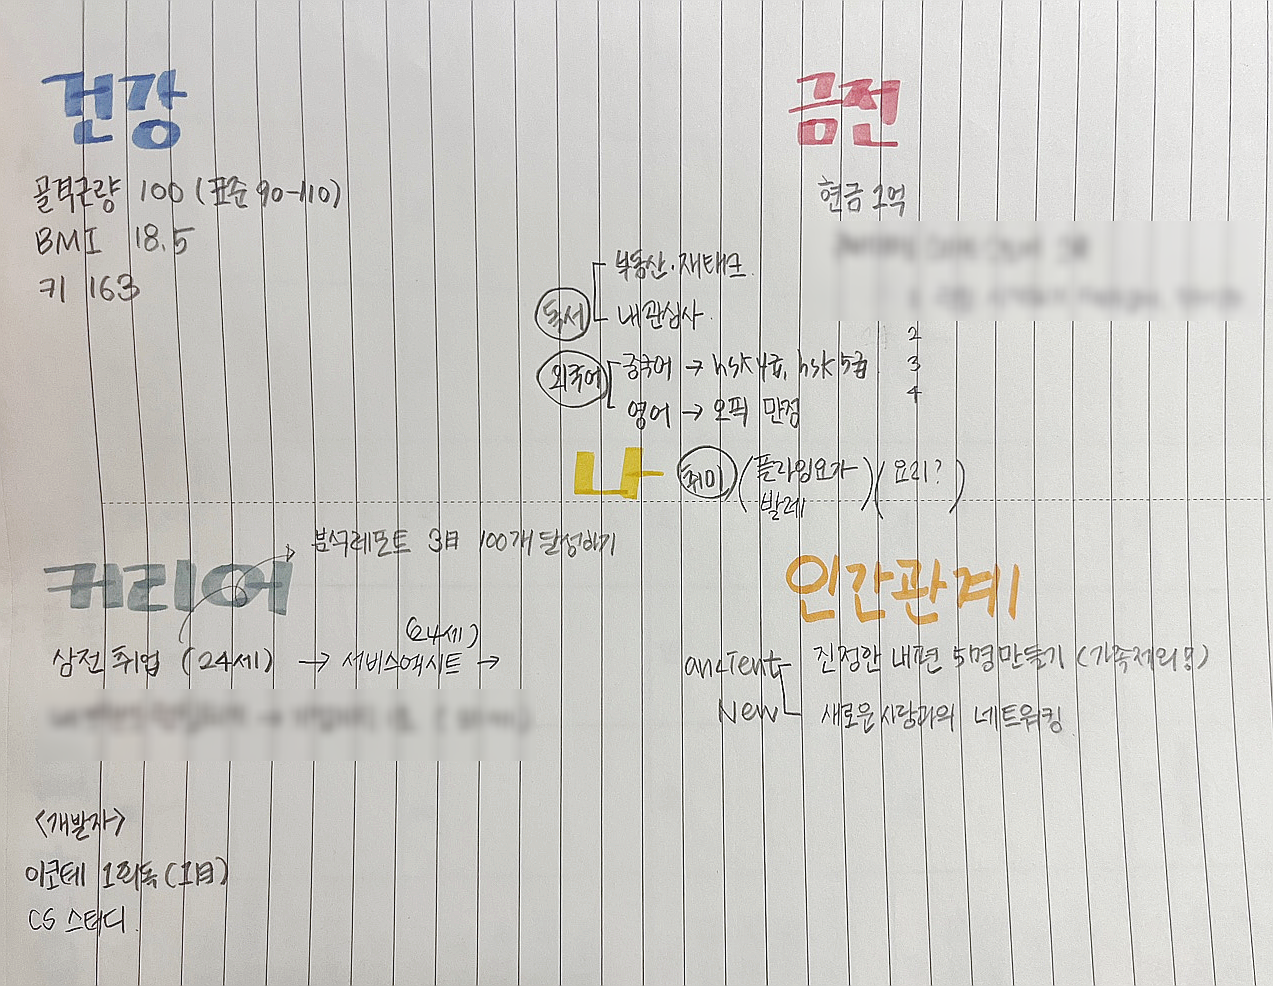 건강
골격근량 100 (표준 90-110)
BMI 18.5
키 163
금전
현금 1억
2
3
4
독서
부동산·재테크
내관심사
외국어
중국어 → hsk 4급, hsk 5급
영어 → 오픽 만점
나
취미
(플라잉요가
발레)
(요리?)
커리어
분석레포트 3月 100개 달성하기
삼전 취업 (24세) → 서비스엑시트 →
(24세)
<개발자>
이코테 1회독 (1月)
CS 스터디
인간관계
ancient
진정한 내편 5명 만들기 (가족제외)
New
새로운 사람과의 네트워킹